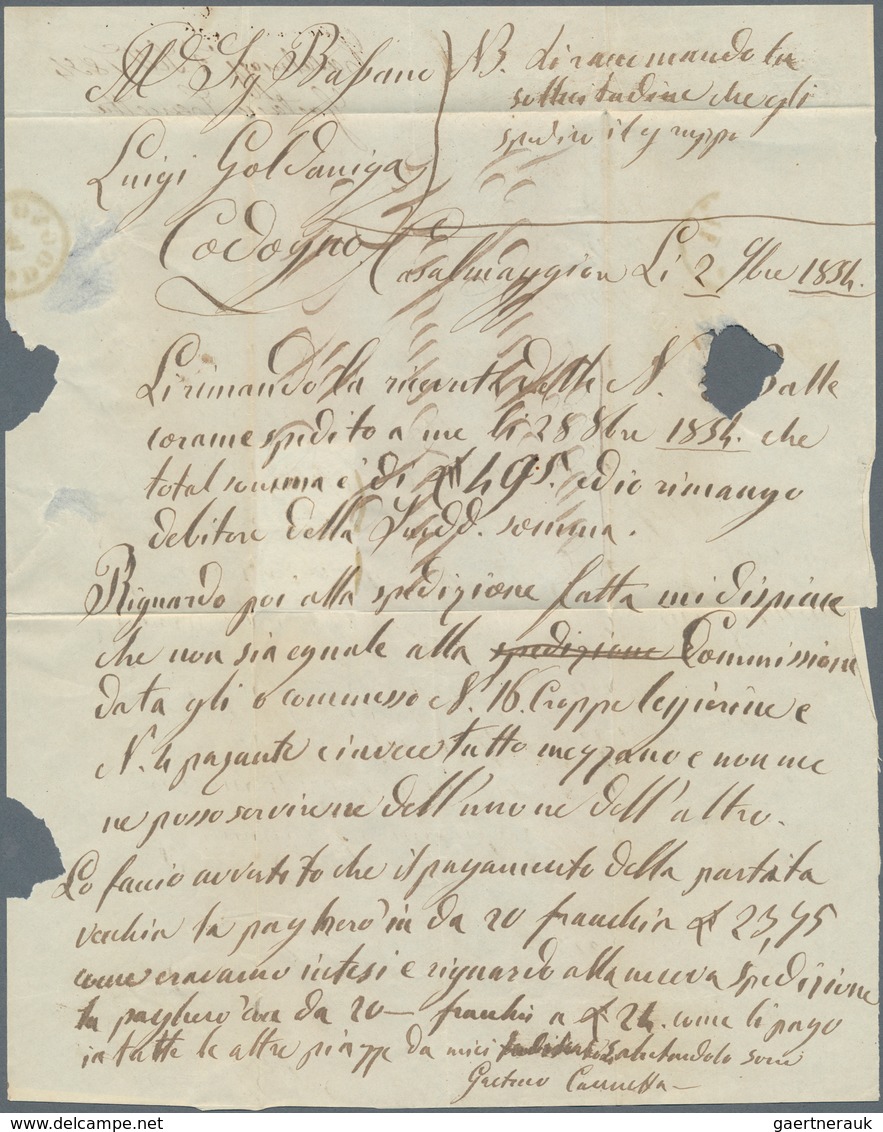 Al Sig. Bassano
Luigi Goldaniga
Codogno
NB. Li raccomando la
sollecitudine che gli
spedire il gruppo
Casalmaggiore Li 2 9bre 1854.
Li rimando la ricevuta delle N. Balle
corame spedito a me li 28 8bre 1854. che
total somma è di 495. ed io rimango
debitore della Sudd. somma.
Riguardo poi alla spedizione fatta mi dispiace
che non sia eguale alla spedizione Commissione
data gli o commesso N. 16. Croppe leggierine e
N. 4 pesante e invece tutto mezzano e non me
ne posso servirene dell'uno ne dell'altro.
Lo faccio avvertito che il pagamento della partita
vecchia la pagherò in da 20 franchi a 23,75
come eravamo intesi e riguardo alla nuova spedizione
la pagherò da 20 franchi a 24. come li pago
in tutte le altre piazze da miei salutandolo sono
Gaetano
gaertnerauk